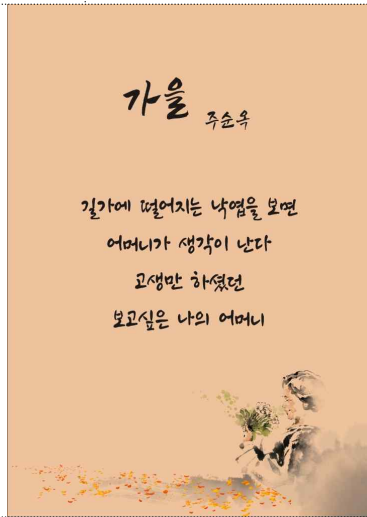 가을
주순옥
길가에 떨어지는 낙엽을 보면
어머니가 생각이 난다
고생만 하셨던
보고싶은 나의 어머니